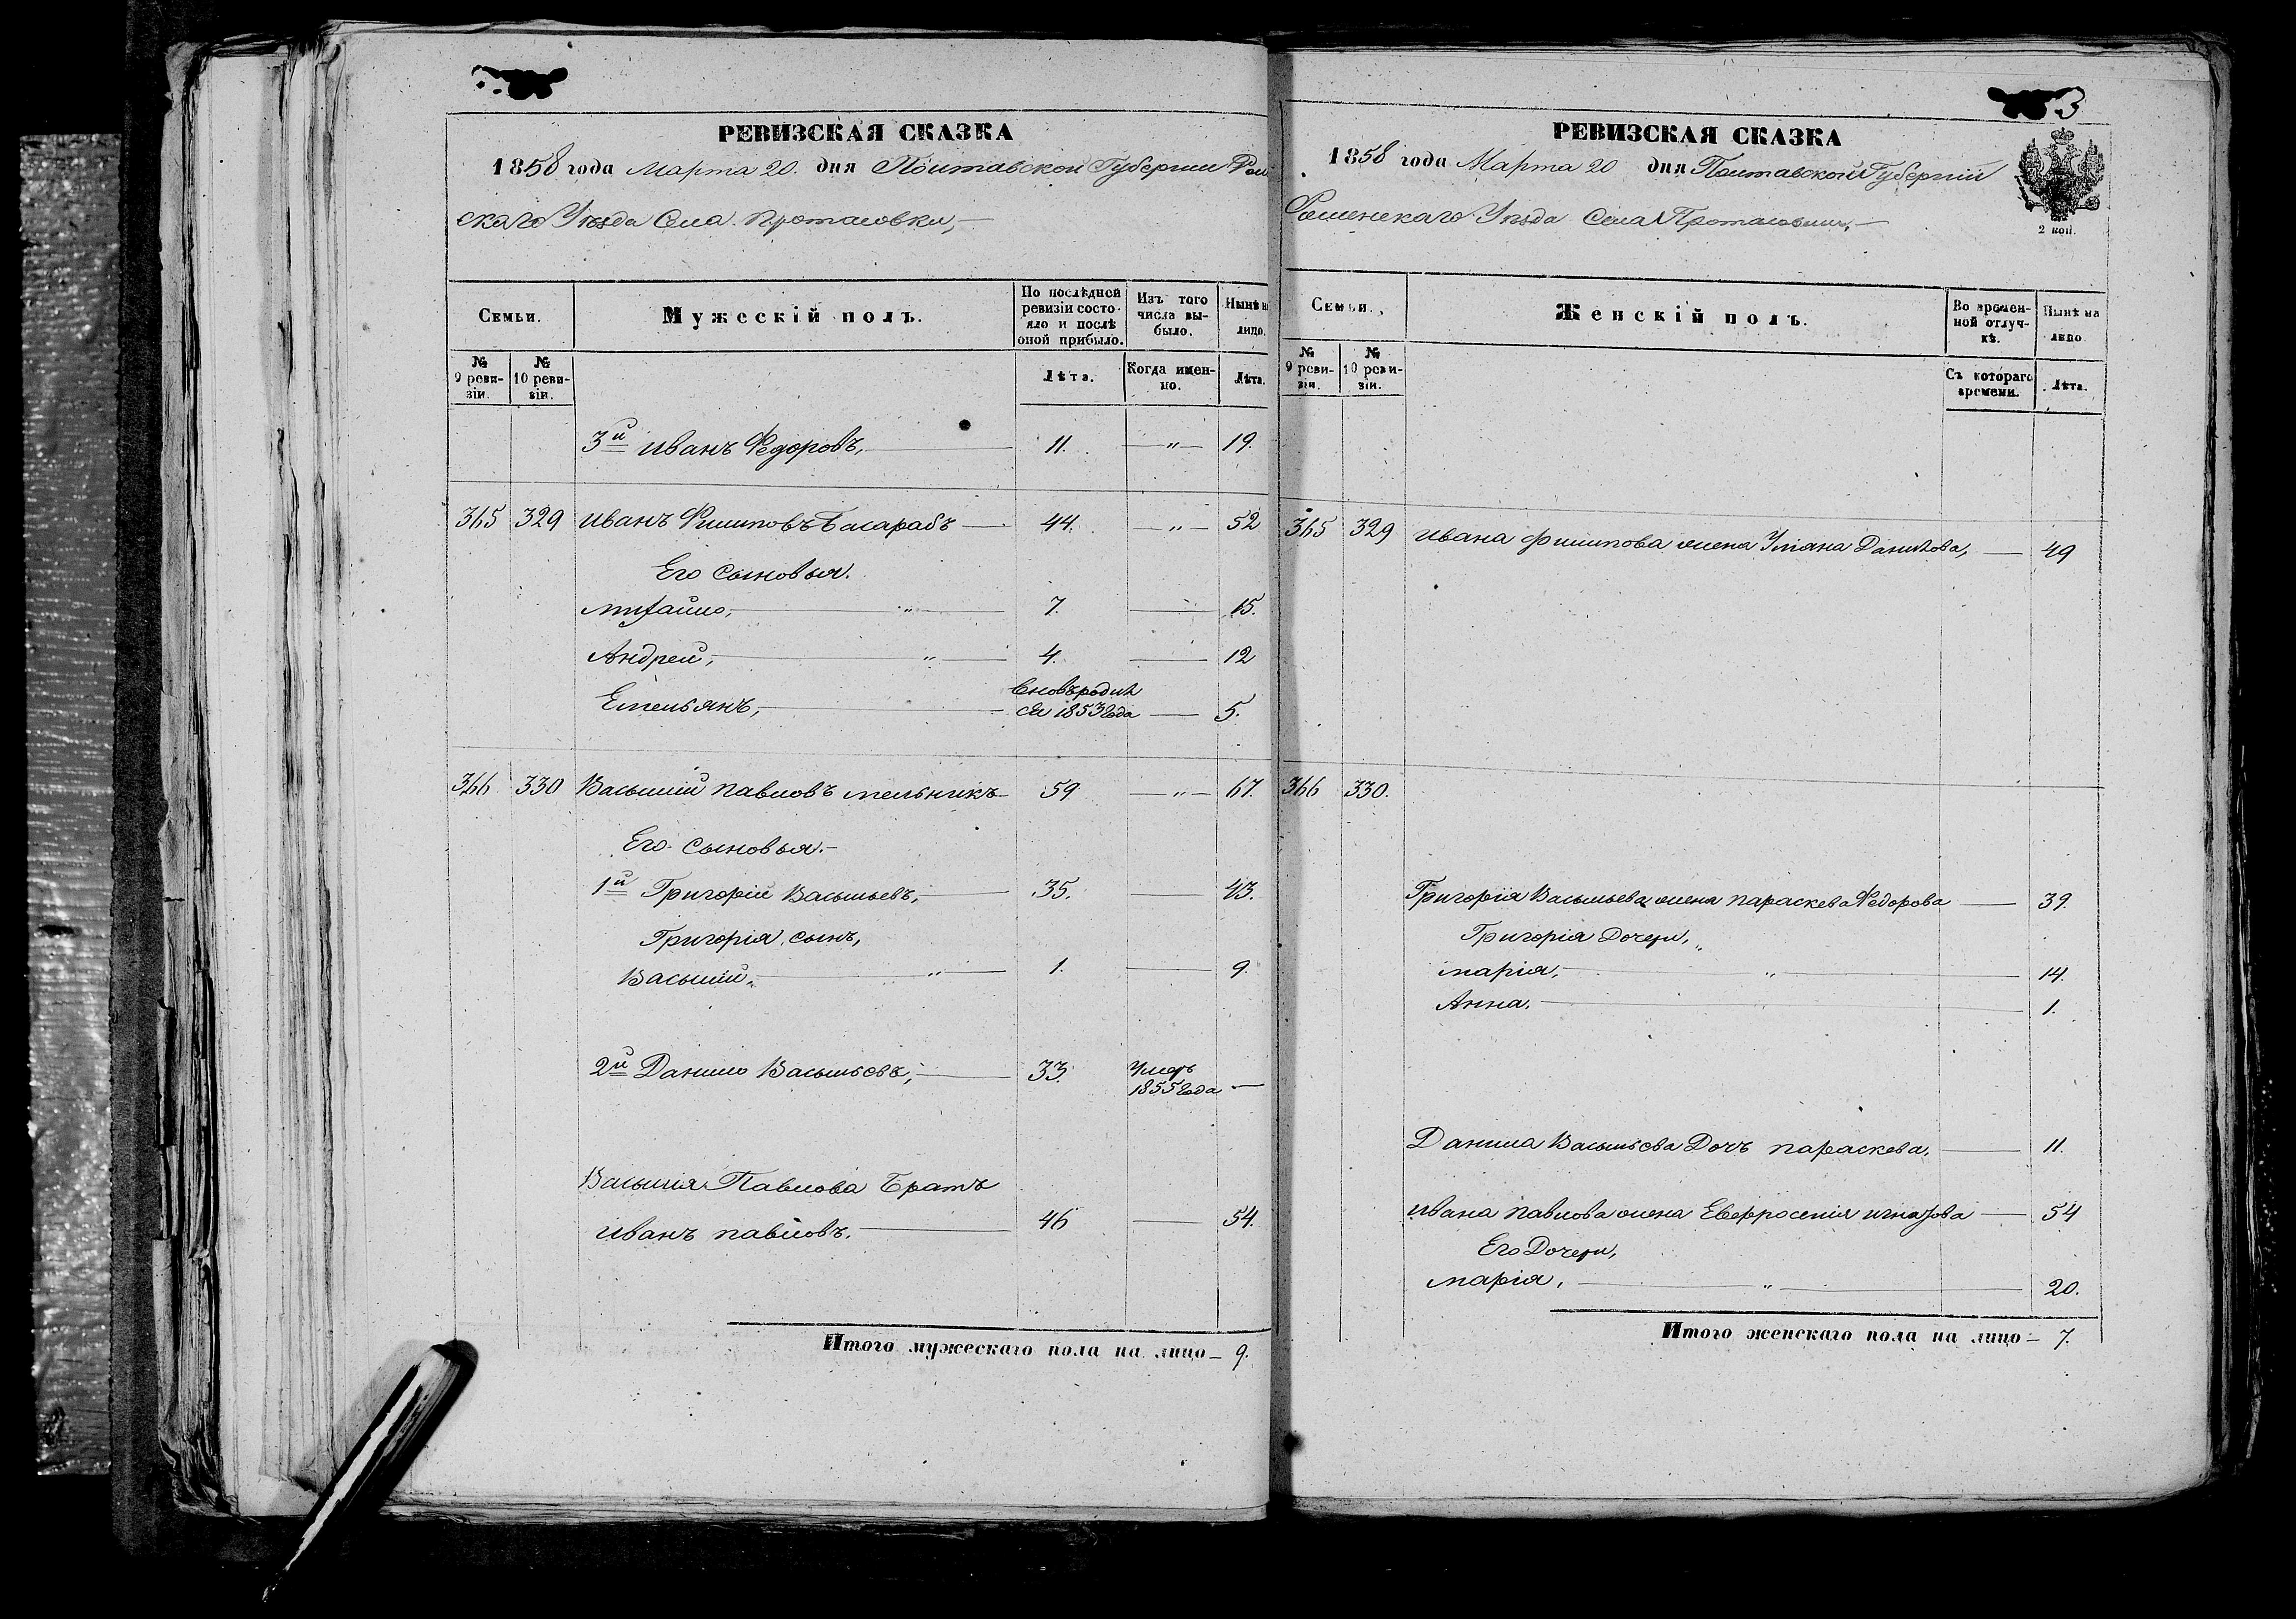 РЕВИЗСКАЯ СКАЗКА
1858 года Марта 20. дня Полтавской Губернии Ром
скаго Уѣзда Села Протасовки,
Семьи.
Мужескій полъ.
По послѣдней ревизіи состояло и послѣ оной прибыло.
Изъ того числа выбыло.
Нынѣ на лицо.
№ 9 ревизіи.
№ 10 ревизіи.
Лѣта.
Когда именно.
Лѣта.
3й Иванъ Федоровъ, 11. — " — 19.
365 329 Иванъ Филиповъ Басарабъ 44. — " — 52
Его Сыновья.
Михайло, " 7. 15.
Андрей, " 4. 12
Емельянъ, вновь родил
ся 1853 года 5.
366 330 Василий Павловъ Мельникъ 59 — " — 67.
Его Сыновья.
1й Григорій Васильевъ, 35. 43.
Григорія сынъ,
Василий, " 1. 9.
2й Данило Васильевъ, 33. Умеръ
1855 года
Василия Павлова Братъ
Иванъ Павловъ. 46 54.
Итого мужескаго пола на лицо 9.
3
РЕВИЗСКАЯ СКАЗКА
1858 года Марта 20 дня Полтавской Губерніи
Роменскаго Уѣзда Села Протасовки,
2 коп.
Семьи.
Женскій полъ.
Во временной отлучкѣ.
Нынѣ на лицо.
№ 9 ревизіи.
№ 10 ревизіи.
Съ котораго времени.
Лѣта.
365 329 Ивана Филипова жена Уляна Данилова, 49
366 330.
Григорія Васильева жена Параскева Федорова 39.
Григорія Дочери,
Марія, " 14.
Анна. 1.
Данила Васильева Дочь Параскева. 11.
Ивана Павлова жена Евфросенія Игнатова 54
Его Дочери,
Марія, " 20.
Итого женскаго пола на лицо 7.